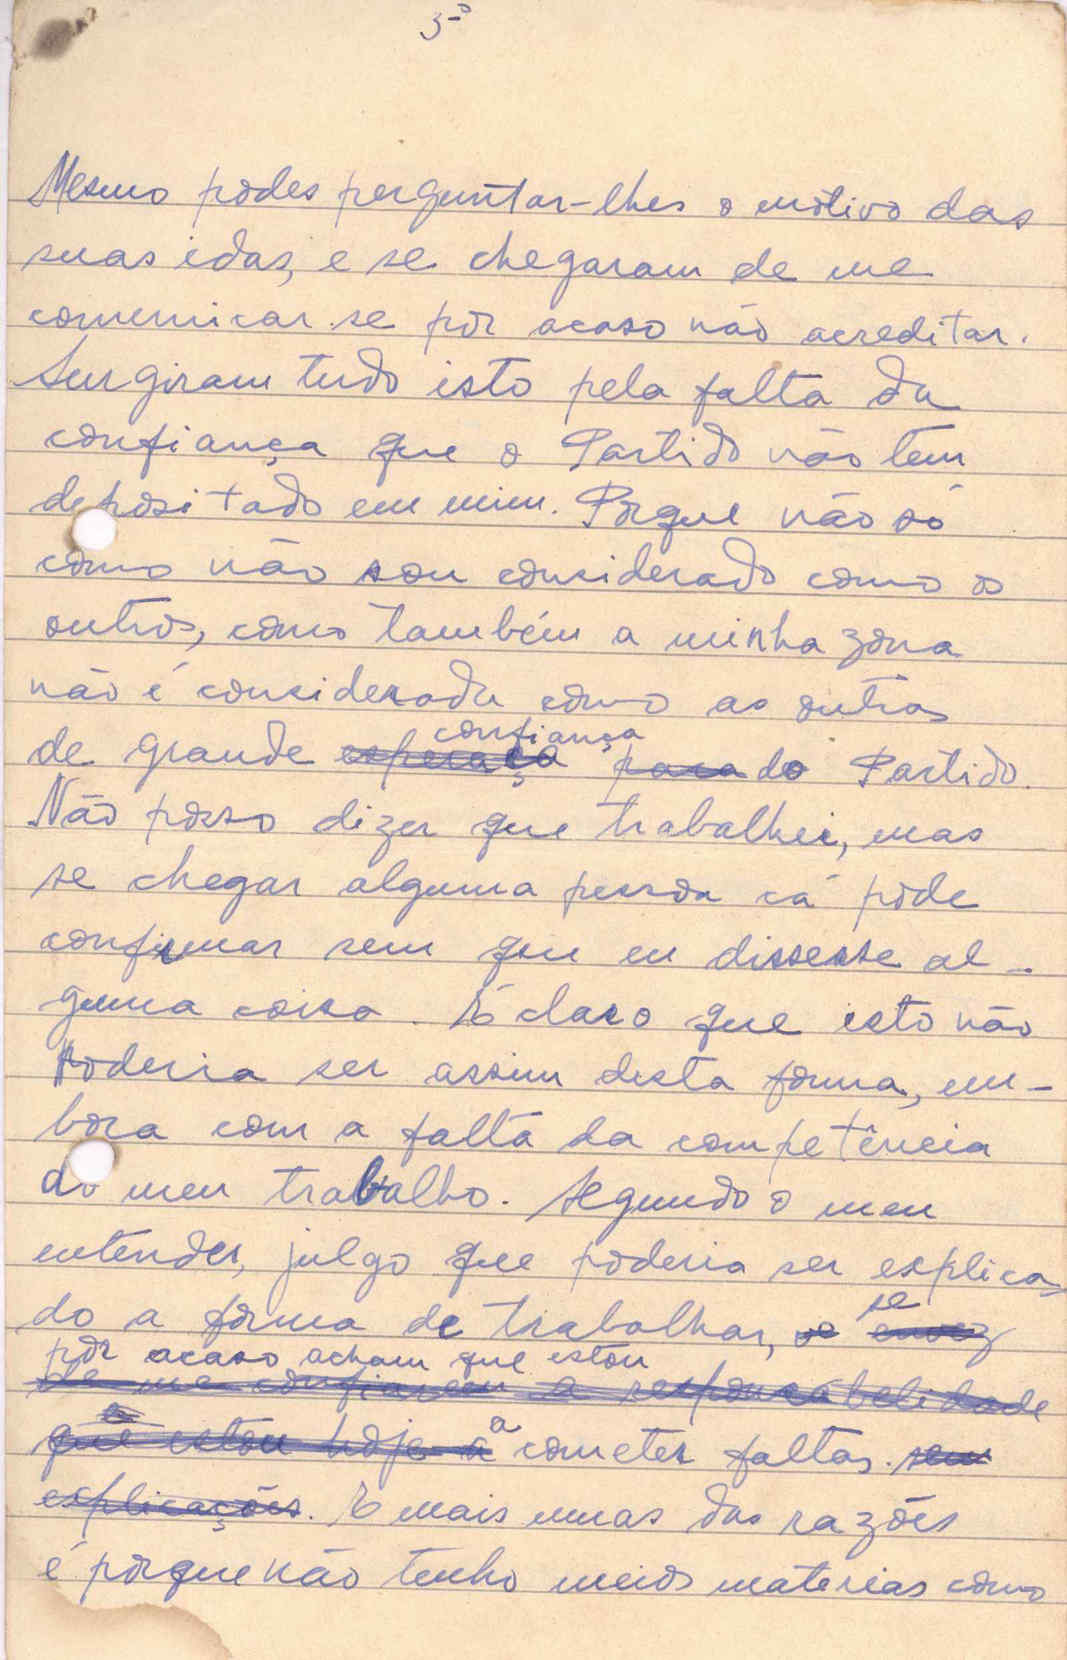 3º
Mesmo podes perguntar-lhes o motivo das
suas idas, e se chegaram de me
comunicar se por acaso não acreditar.
Surgiram tudo isto pela falta da
confiança que o Partido não tem
depositado em mim. Porque não só
como não sou considerado como os
outros, como também a minha zona
não é considerada como as outras
confiança
de grande esperaça para do Partido.
Não posso dizer que trabalhei, mas
se chegar alguma pessoa cá pode
confirmar sem que eu dissesse al-
guma coisa. É claro que isto não
Poderia ser assim desta forma, em-
bora com a falta da competência
do meu trabalho. Segundo o meu
entender, julgo que poderia ser explica
se
do a forma de trabalhar, e envez
por acaso acham que estou
de me confiarem a responsabelidade
que estou hoje a a cometer faltas. sem
explicações. E mais umas das razões
é porque não tenho meios materias como